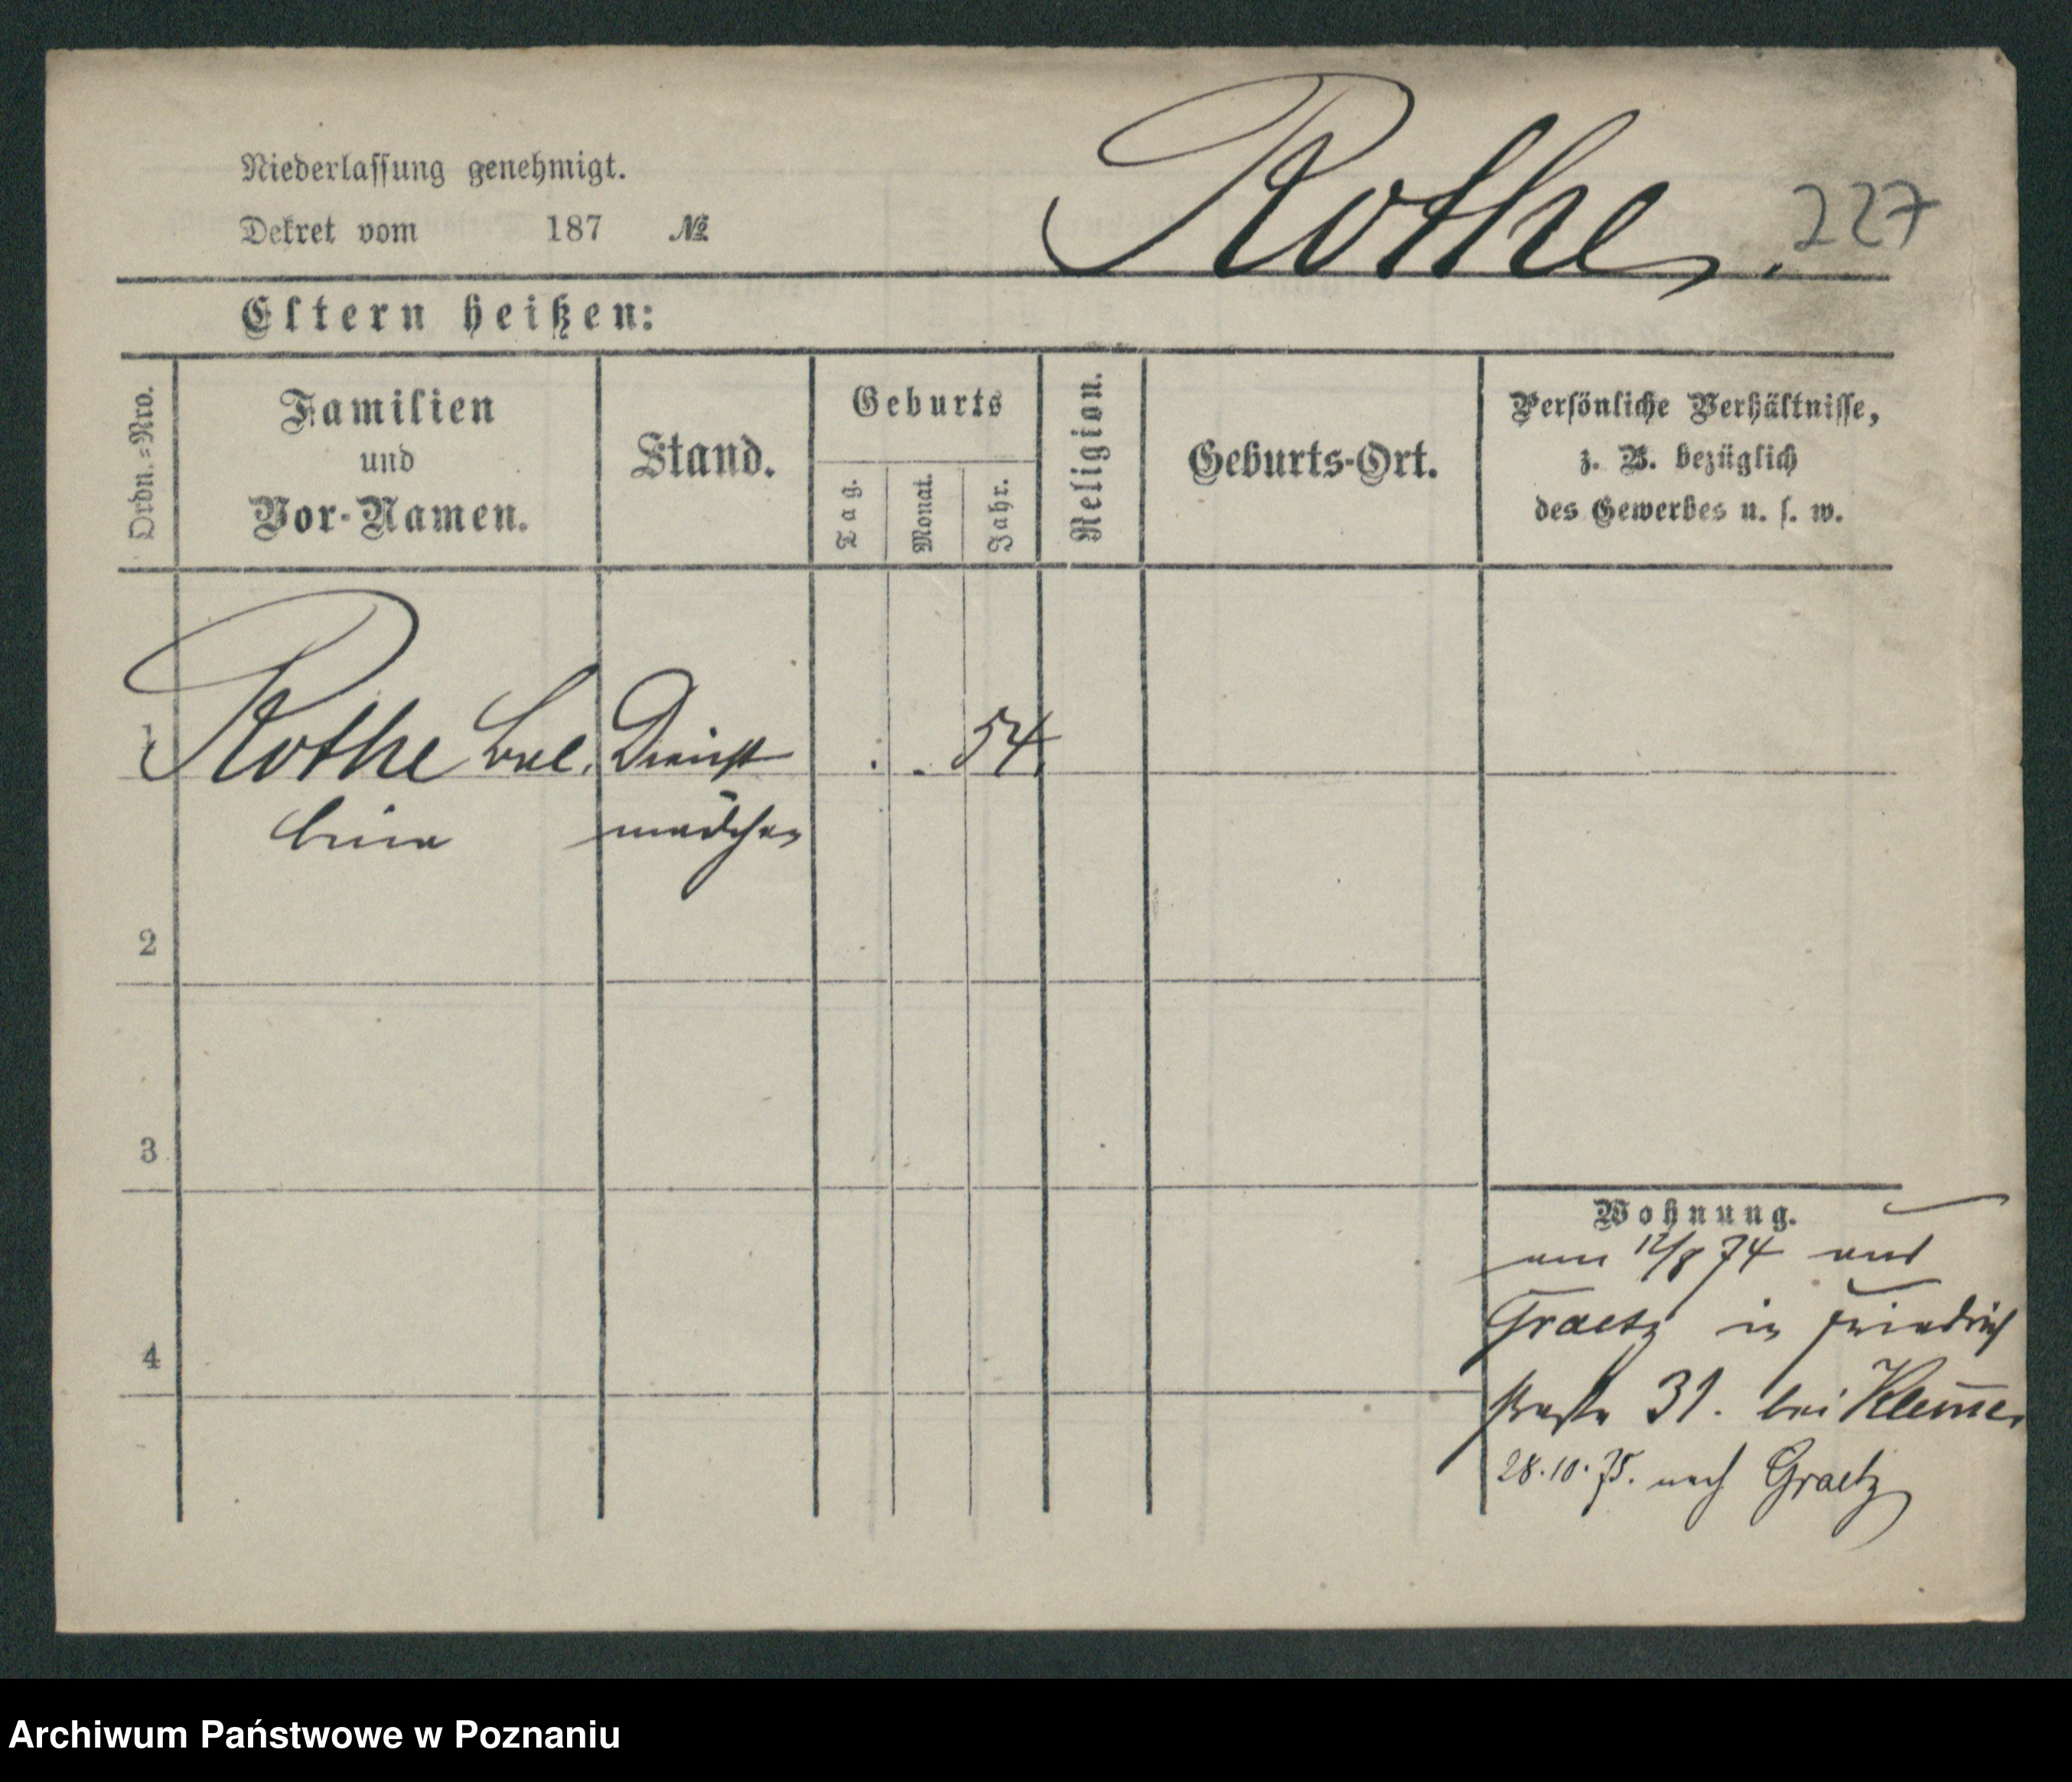 Niederlassung genehmigt.
Rothe.
227
Dekret vom 187 №
Eltern heißen:
Ordn.=Nro.
Familien
und
Vor-Namen.
Stand.
Geburts
Tag.
Monat.
Jahr.
Religion.
Geburts-Ort.
Persönliche Verhältnisse,
z. B. bezüglich
des Gewerbes u. s. w.
1 Rothe Dienst 54.
mädchen
2
3
Wohnung.
am 12/8 74 aus
Graetz in Friedrich
4
straße 31. bei
28.10.75. nach Graetz
Archiwum Państwowe w Poznaniu